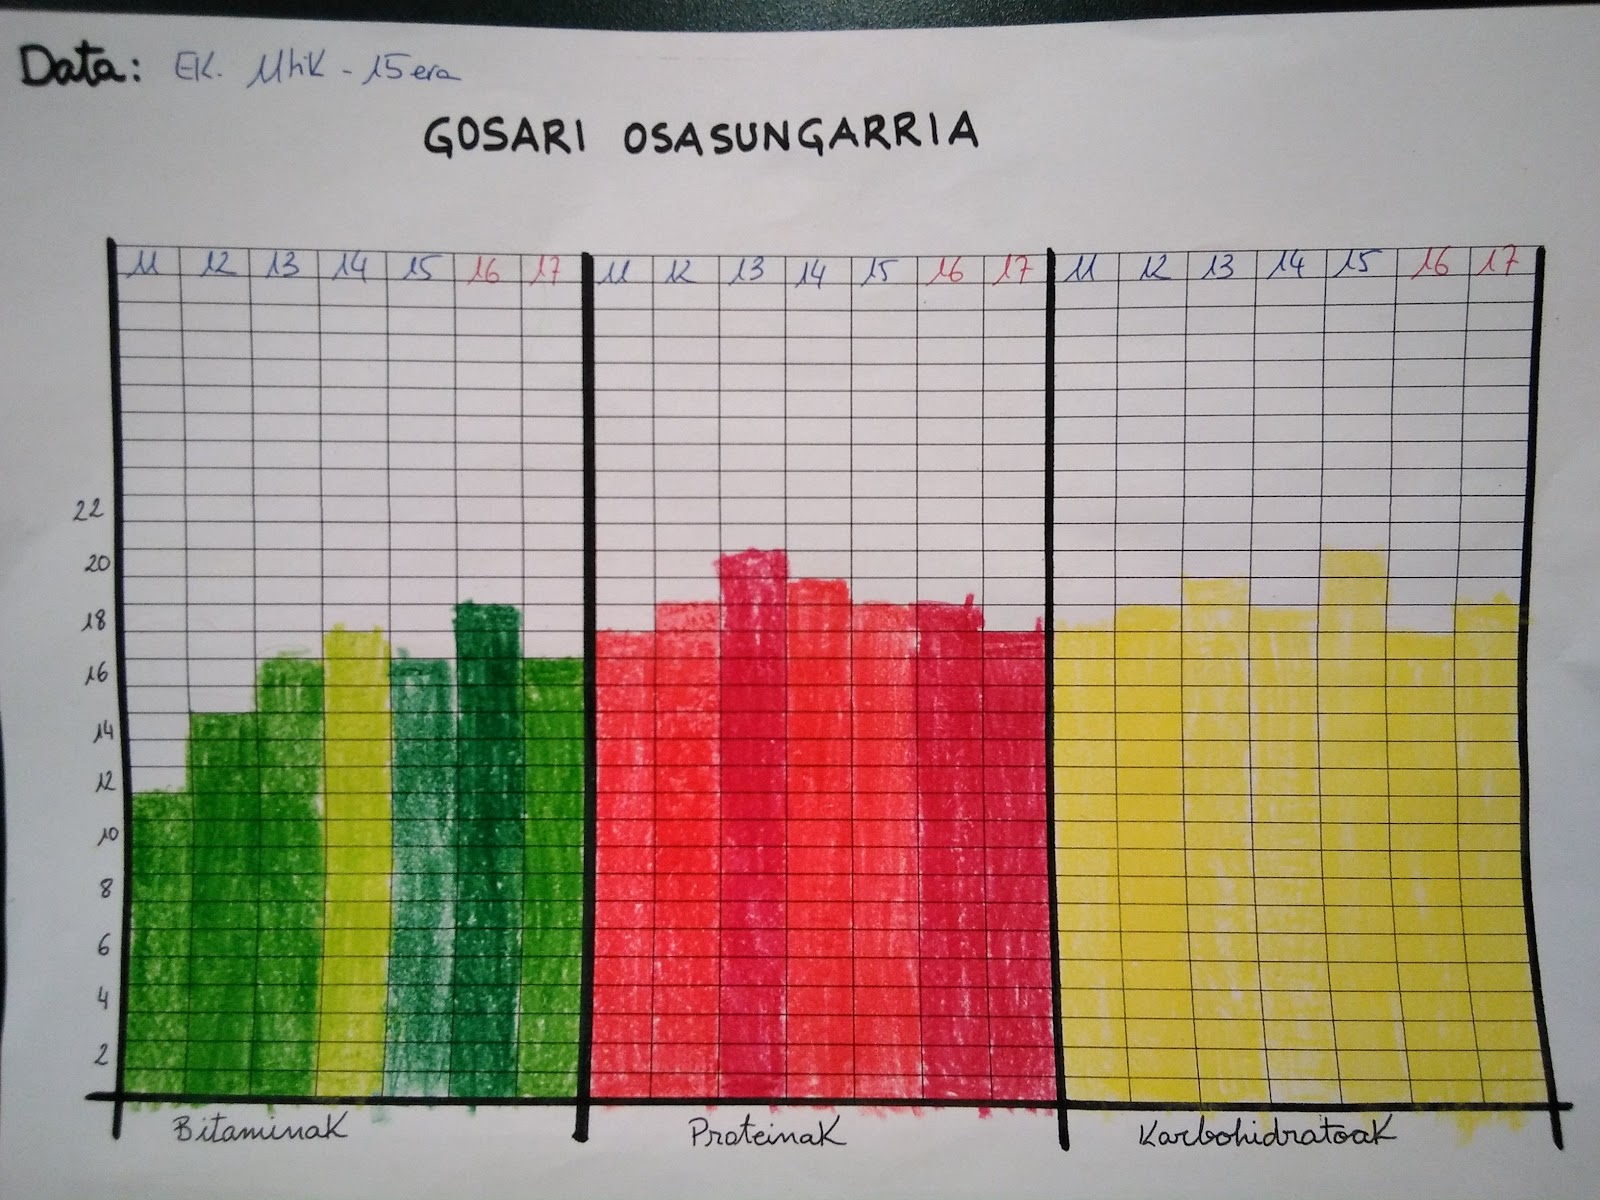 Data: EK. 11tik - 15era
GOSARI OSASUNGARRIA
11 12 13 14 15 16 17 11 12 13 14 15 16 17 11 12 13 14 15 16 17
22
20
18
16
14
12
10
8
6
4
2
Bitaminak Proteinak Karbohidratoak